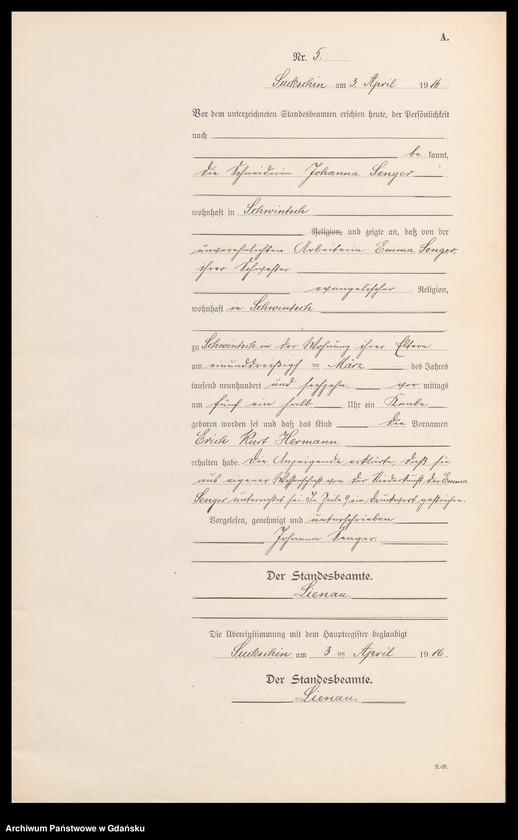 A.
Nr. 5.
Suckschin am 3. April 1916.
Vor dem unterzeichneten Standesbeamten erschien heute, der Persönlichkeit
nach
be kannt,
die Schneiderin Johanna Senger
wohnhaft in Schwintsch
Religion, und zeigte an, daß von der
unverehelichten Arbeiterin Emma Senger,
ihrer Schwester
evangelischer Religion,
wohnhaft in Schwintsch
zu Schwintsch in der Wohnung ihrer Eltern
am einunddreißigsten März des Jahres
tausend neunhundert und sechzehn vor mittags
um fünf ein halb Uhr ein Knabe
geboren worden sei und daß das Kind die Vornamen
Erich Kurt Hermann
erhalten habe. Die Anzeigende erklärte, daß sie
aus eigener Wissenschaft von der Niederkunft der Emma
Senger unterrichtet sei. In Zeile 9 ein Druckwort gestrichen.
Vorgelesen, genehmigt und unterschrieben
Johanna Senger.
Der Standesbeamte.
Lienau.
Die Übereinstimmung mit dem Hauptregister beglaubigt
Suckschin am 3 ten April 1916.
Der Standesbeamte.
Lienau.
Archiwum Państwowe w Gdańsku